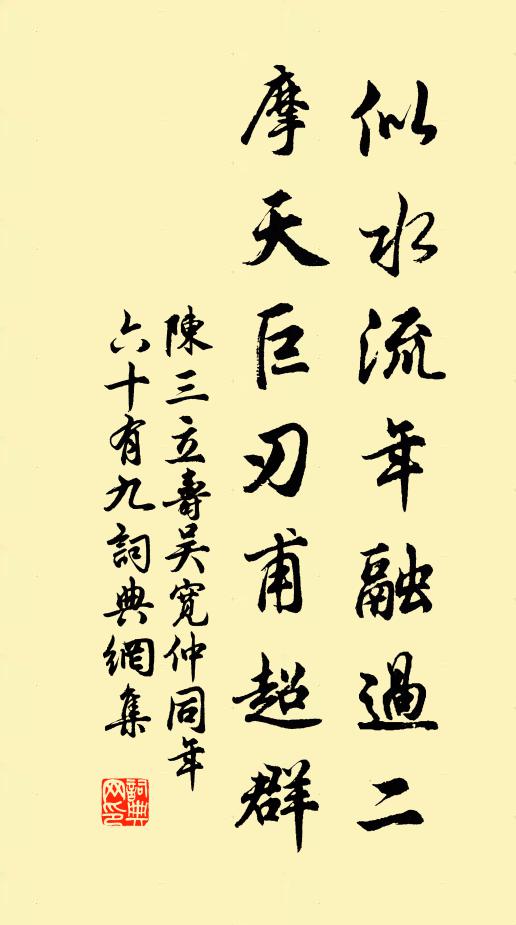 似水流年融過二
摩天巨刃甫超群
陳三立壽吴寬仲同年
六十有九詞典網集
詞典网印